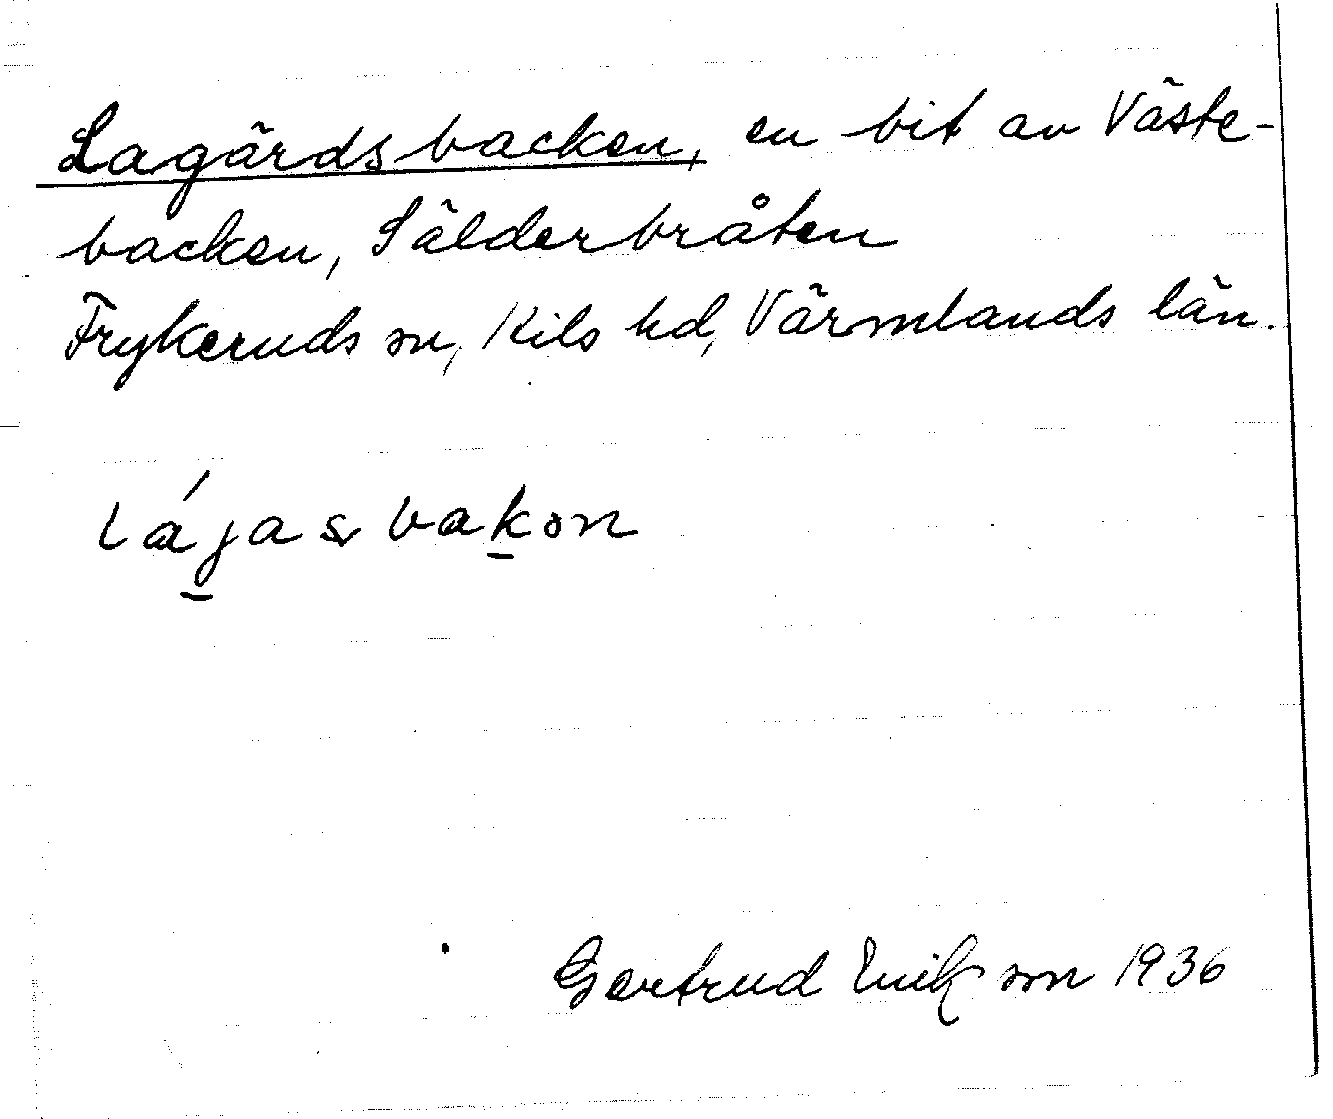 Lagårdsbacken, en bit av Väste-
backen, Sälderbråten
Frykeruds sn, Kils hd, Värmlands län.
lájasbakən
Gertrud Erikson 1936